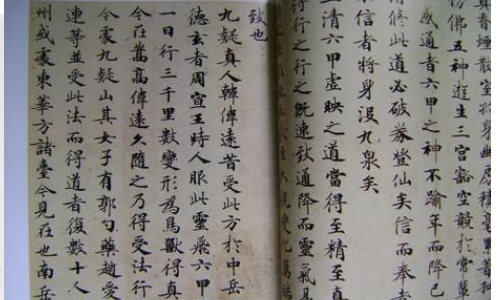 真香散室孤身幽房積毫累著和
彷彿五神遊生三宮豁空競於常輩
感通者六甲之神不踰年而降己
修此道必破券登仙矣信而奉
不信者將身沒九泉矣
上清六甲虛映之道當得至精至真
行之行之既速致通降而靈氣易
變化萬端
致也
九疑真人韓偉遠昔受此方於中岳
德玄者周宣王時人服此靈飛六甲
一日行三千里數變形為鳥獸得真
今在嵩高偉遠久隨之乃得受法行
今處九疑山其女子有郭勺藥趙愛
連等並受此法而得道者復數十人
州或處東華方諸臺今見在也南岳